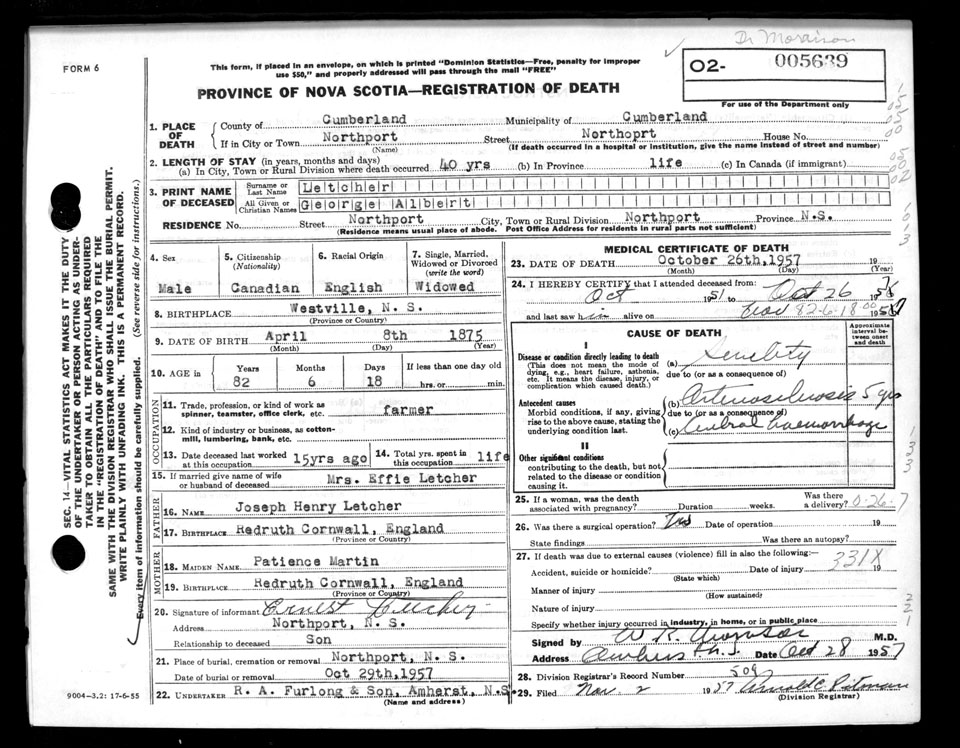 Dr Morrison
FORM 6
This form, if placed in an envelope, on which is printed "Dominion Statistics—Free, penalty for improper
use $50," and properly addressed will pass through the mail "FREE"
O2- 005639
PROVINCE OF NOVA SCOTIA—REGISTRATION OF DEATH
For use of the Department only
1. PLACE OF DEATH County of Cumberland Municipality of Cumberland
If in City or Town Northport Street Northoprt House No.
(Name) (If death occurred in a hospital or institution, give the name instead of street and number)
2. LENGTH OF STAY (in years, months and days)
(a) In City, Town or Rural Division where death occurred 40 yrs (b) In Province life (c) In Canada (if immigrant)
3. PRINT NAME OF DECEASED Surname or Last Name Letcher
All Given or Christian Names George Albert
RESIDENCE No. Street Northport City, Town or Rural Division Northport Province N.S.
(Residence means usual place of abode. Post Office Address for residents in rural parts not sufficient)
4. Sex 5. Citizenship (Nationality) 6. Racial Origin 7. Single, Married, Widowed or Divorced (write the word)
Male Canadian English Widowed
8. BIRTHPLACE Westville, N. S.
(Province or Country)
9. DATE OF BIRTH April 8th 1875
(Month) (Day) (Year)
10. AGE in Years Months Days If less than one day old
82 6 18 hrs. or min.
OCCUPATION
11. Trade, profession, or kind of work as
spinner, teamster, office clerk, etc. farmer
12. Kind of industry or business, as cotton-
mill, lumbering, bank, etc.
13. Date deceased last worked at this occupation 15yrs ago 14. Total yrs. spent in this occupation life
15. If married give name of wife
or husband of deceased Mrs. Effie Letcher
FATHER
16. NAME Joseph Henry Letcher
17. BIRTHPLACE Redruth Cornwall, England
(Province or Country)
MOTHER
18. MAIDEN NAME Patience Martin
19. BIRTHPLACE Redruth Cornwall, England
(Province or Country)
20. Signature of informant Ernest Letcher
Address Northport, N. S.
Relationship to deceased Son
21. Place of burial, cremation or removal Northport, N. S.
Date of burial or removal Oct 29th, 1957
22. UNDERTAKER R. A. Furlong & Son, Amherst, N.S.
(Name and address)
9004-3.2: 17-6-55
MEDICAL CERTIFICATE OF DEATH
23. DATE OF DEATH October 26th, 1957 19
(Month) (Day) (Year)
24. I HEREBY CERTIFY that I attended deceased from:
Oct 1951 to Oct 26 195
and last saw h im alive on 195
82-6-18
CAUSE OF DEATH
Approximate interval between onset and death
I
Disease or condition directly leading to death
(This does not mean the mode of
dying, e.g., heart failure, asthenia,
etc. It means the disease, injury, or
complication which caused death.)
(a) Senility
due to (or as a consequence of)
Antecedent causes
Morbid conditions, if any, giving
rise to the above cause, stating the
underlying condition last.
(b) Arteriosclerosis 5 yrs
due to (or as a consequence of)
(c) Cerebral Haemorrhage
II
Other significant conditions
contributing to the death, but not
related to the disease or condition
causing it.
25. If a woman, was the death
associated with pregnancy? Duration weeks. Was there a delivery? 0-26-7
26. Was there a surgical operation? Date of operation 19
State findings Was there an autopsy?
27. If death was due to external causes (violence) fill in also the following:
331X
Accident, suicide or homicide? Date of injury 19
(State which)
Manner of injury
(How sustained)
Nature of injury
Specify whether injury occurred in industry, in home, or in public place
Signed by M.D.
Address Amherst N.S. Date Oct 28 1957
28. Division Registrar's Record Number 509
29. Filed Nov. 2 1957
(Division Registrar)
SEC. 14—VITAL STATISTICS ACT MAKES IT THE DUTY
OF THE UNDERTAKER OR PERSON ACTING AS UNDER-
TAKER TO OBTAIN ALL THE PARTICULARS REQUIRED
IN THE "REGISTRATION OF DEATH" AND TO FILE THE
SAME WITH THE DIVISION REGISTRAR WHO SHALL ISSUE THE BURIAL PERMIT.
WRITE PLAINLY WITH UNFADING INK. THIS IS A PERMANENT RECORD.
Every item of information should be carefully supplied. (See reverse side for instructions.)